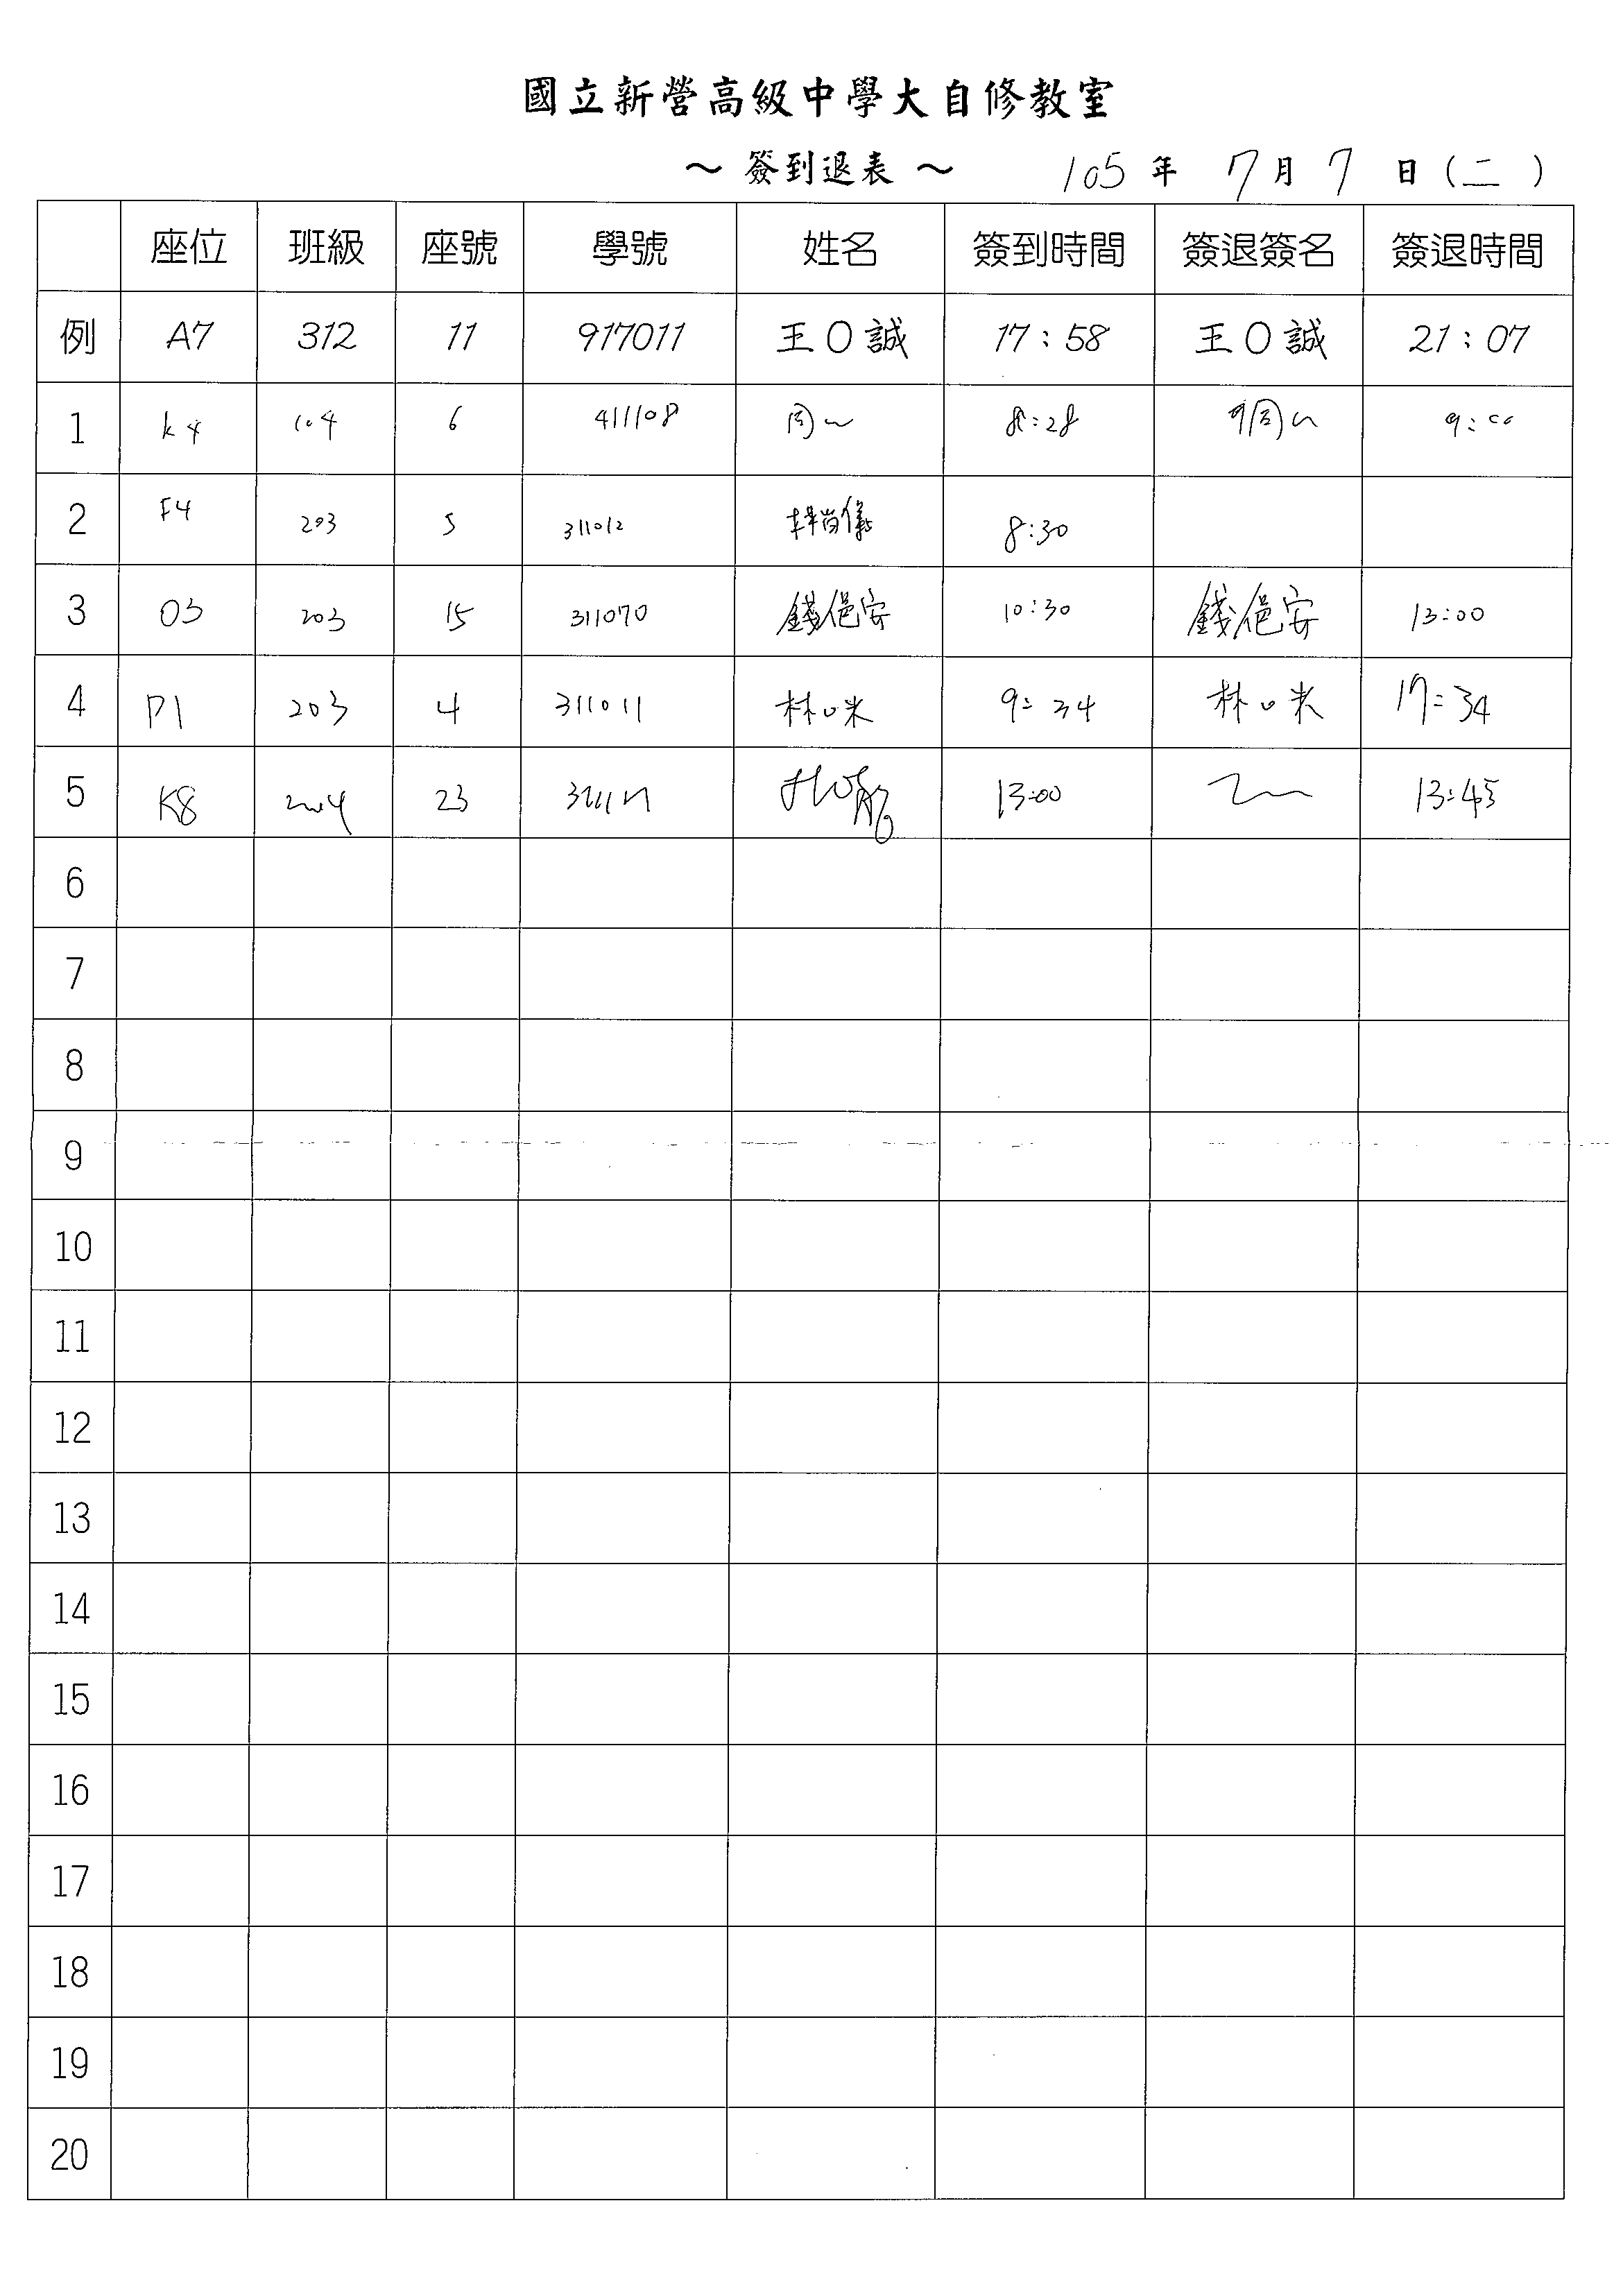 國立新營高級中學大自修教室
～ 簽到退表 ～ 105 年 7 月 7 日 (二)
座位 班級 座號 學號 姓名 簽到時間 簽退簽名 簽退時間
例 A7 312 11 917011 王O誠 17:58 王O誠 21:07
1 K4 104 6 411108 8:28 9:00
2 F4 203 5 311012 8:30
3 O3 203 15 311070 錢俋安 10:30 錢俋安 13:00
4 P1 203 4 311011 林 米 9:34 林 米 17:34
5 K8 204 23 13:00 13:45
6
7
8
9
10
11
12
13
14
15
16
17
18
19
20